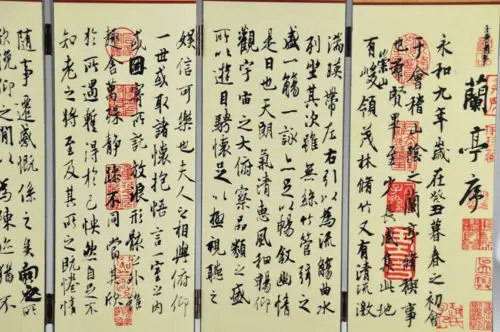 蘭亭序
永和九年歲在癸丑暮春之初會
于會稽山陰之蘭亭脩稧事
也群賢畢至少長咸集此地
有崇山峻領茂林脩竹又有清流激
湍暎帶左右引以為流觴曲水
列坐其次雖無絲竹管弦之
盛一觴一詠亦足以暢敘幽情
是日也天朗氣清惠風和暢仰
觀宇宙之大俯察品類之盛
所以遊目騁懷足以極視聽之
娛信可樂也夫人之相與俯仰
一世或取諸懷抱悟言一室之內
或因寄所託放浪形骸之外雖
趣舍萬殊靜躁不同當其欣
於所遇蹔得於己怏然自足不
知老之將至及其所之既惓情
隨事遷感慨係之矣向之所
欣俛仰之閒以為陳迹猶不